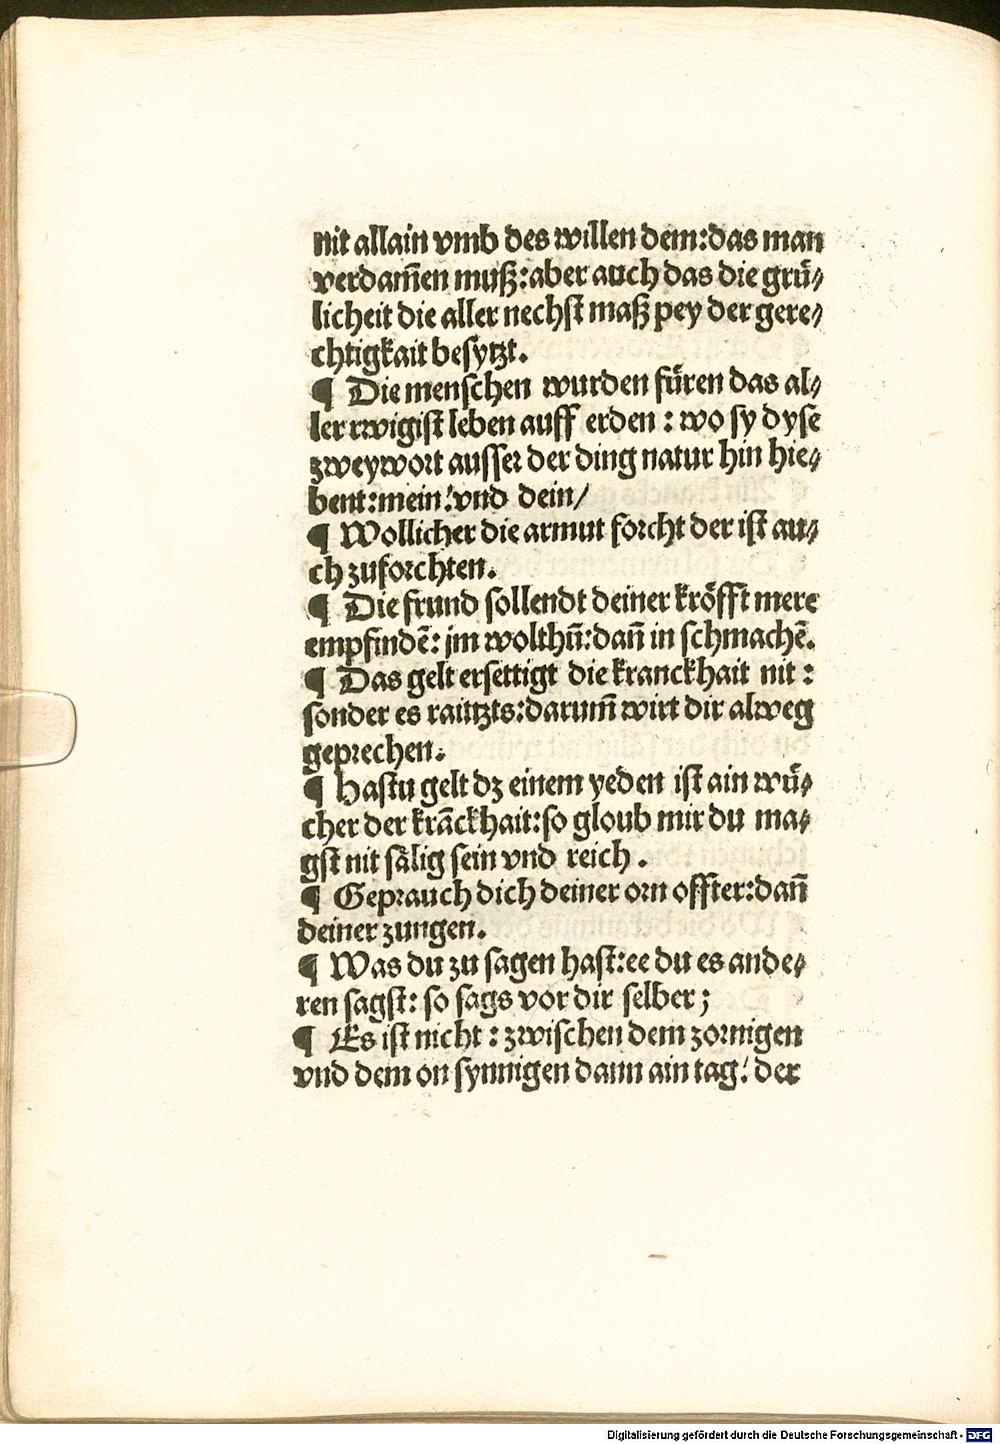 nit allain vmb des willen dem:das man
verdam̃en muß:aber auch das die grü⸗
licheit die aller nechſt maß pey der gere⸗
chtigkait beſytzt.
¶ Die menſchen wurden füren das al⸗
ler rwigiſt leben auff erden : wo ſy dyſe
zweywort auſſer der ding natur hin hie⸗
bent:mein!vnd dein/
¶ Wollicher die armut forcht der iſt au⸗
ch zuforchten.
¶ Die frund ſollendt deiner kröfft mere
empfindē: jm wolthū:dan̄ in ſchmachē.
¶ Das gelt erſettigt die kranckhait nit :
ſonder es raitzts:darum̄ wirt dir alweg
geprechen.
¶ Haſtu gelt dz einem yeden iſt ain wü⸗
cher der krāckhait:ſo gloub mir du ma⸗
gſt nit ſälig ſein vnd reich .
¶ Geprauch dich deiner orn offter:dan̄
deiner zungen.
¶ Was du zu ſagen haſt:ee du es ande⸗
ren ſagſt: ſo ſags vor dir ſelber ;
¶ Es iſt nicht : zwiſchen dem zornigen
vnd dem on ſynnigen dann ain tag! der
Digitalisierung gefördert durch die Deutsche Forschungsgemeinschaft - DFG